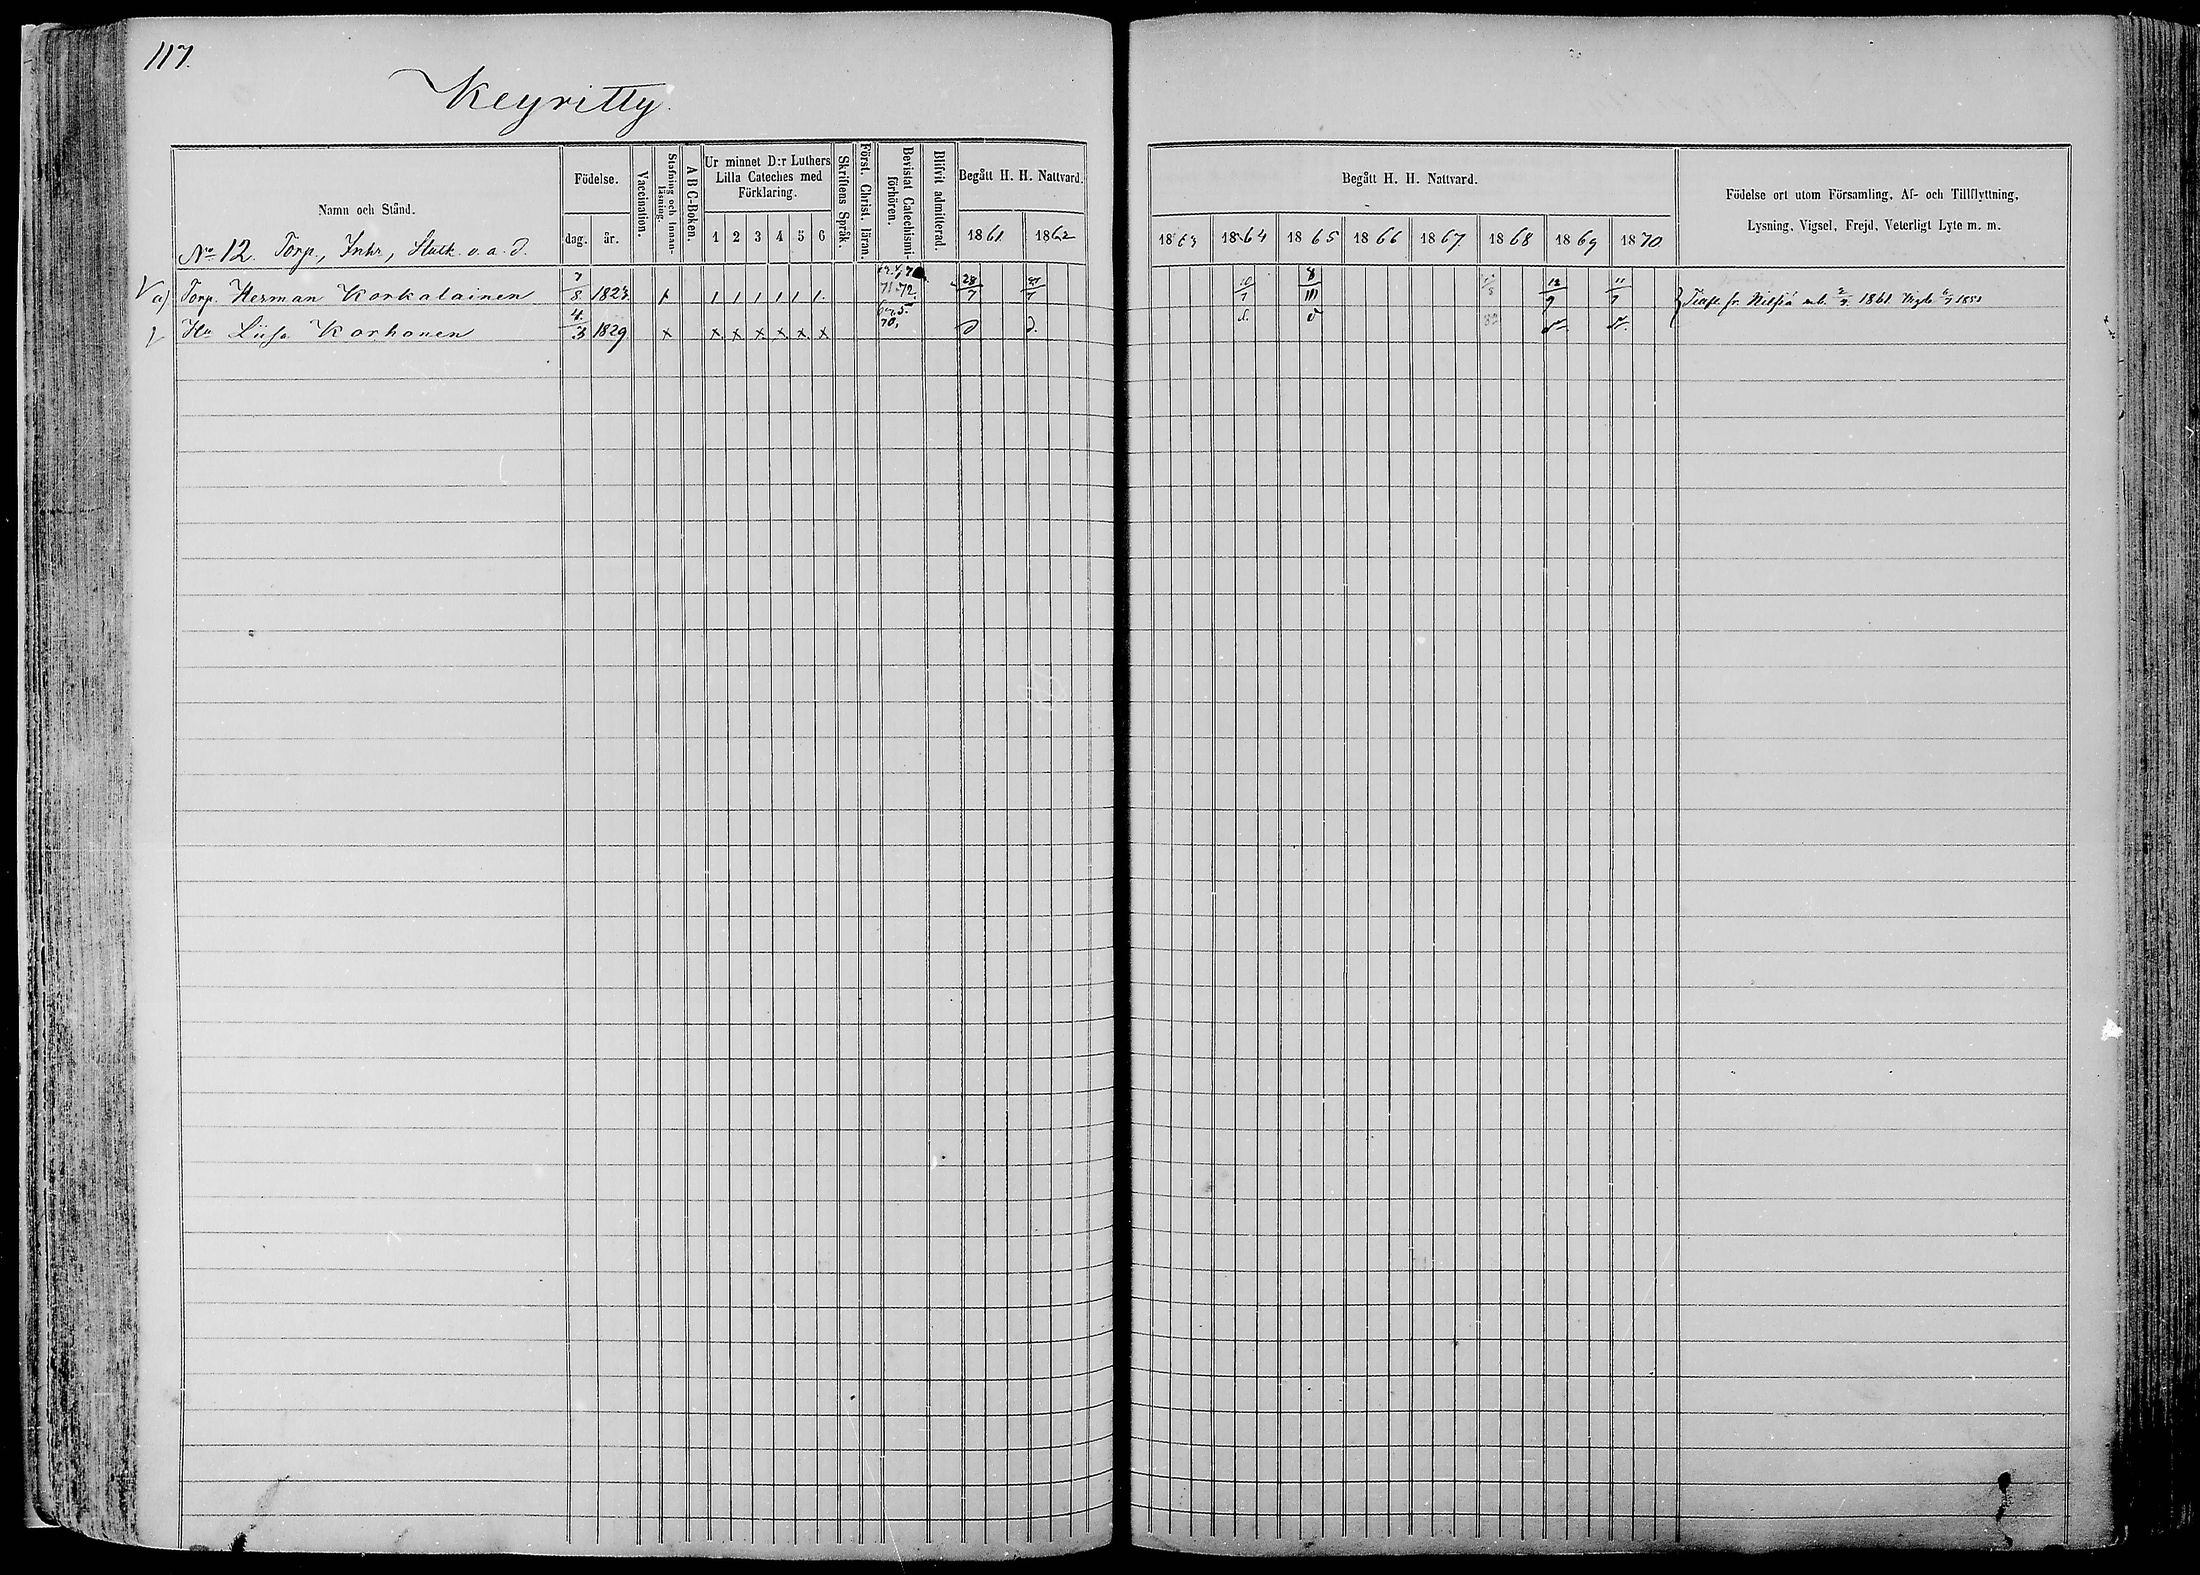 117.
Keyritty.
Namn och Stånd.
Födelse.
dag.
år.
Vaccination.
Stafning och Innanläsning.
A B C-Boken.
Ur minnet D:r Luthers
Lilla Cateches med
Förklaring.
1 2 3 4 5 6
Skriftens Språk.
Först. Christ. läran.
Bevistat Catechismiförhören.
Blifvit admitterad
Begått H. H. Nattvard.
1861 1862
Begått H. H. Nattvard.
1863 1864 1865 1866 1867 1868 1869 1870
Födelse ort utom Församling, Af- och Tillflyttning,
Lysning, Vigsel, Frejd, Veterligt Lyte m. m.
No 12. Torp., Inhr, Statk. o. a. d.
V a) Torp. Herman Korkalainen 7/8 1823 71. 72. 28/7 27/7 10/7 8/111 12/9 11/7 fr. Nilsiä 1861
Hu Liisa Korhonen 4/3 1829 x x x x x x x 70, d d. d. d